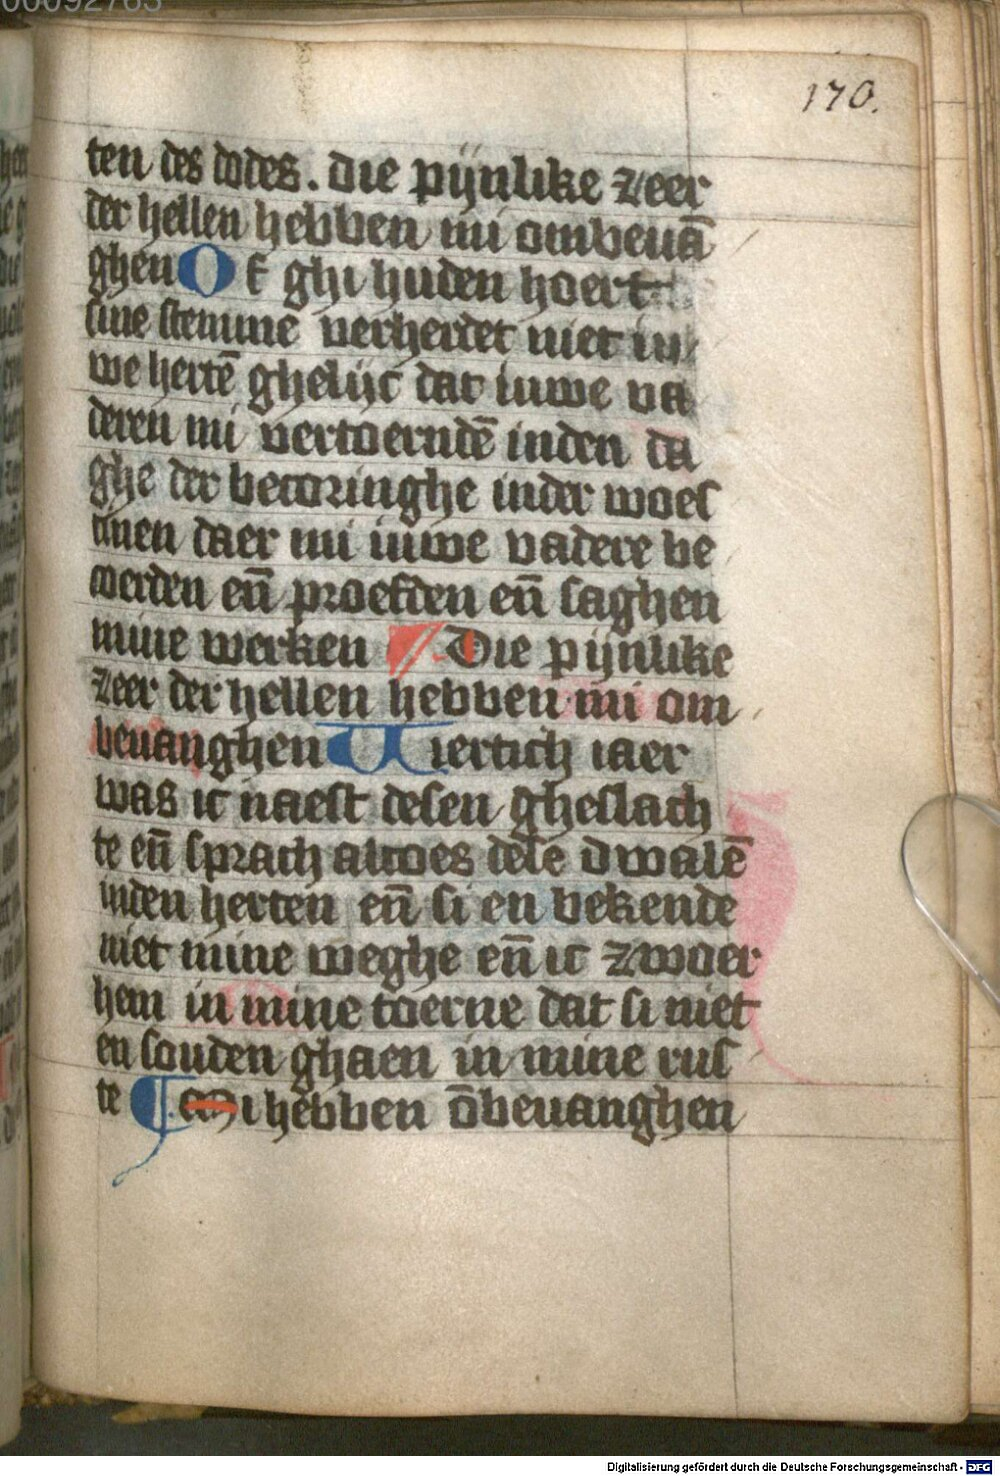 00092763
170.
ten des dodes. Die pijnlike zeer
der hellen hebben mi ombeuā
ghen Of ghi huden hoert
sine stemme verherdet niet iu
we hertē ghelijc dat iuwe va
deren mi vertoerndē inden da
ghe der becoringhe inder woes
tinen daer mi iuwe vadere be
coerden en̄ proefden en̄ saghen
mine werken Die pijnlike
zeer der hellen hebben mi om
beuanghen Viertich iaer
was ic naest desen gheslach
te en̄ sprach altoes dese dwalē
inden herten en̄ si en bekende
niet mine weghe en̄ ic zwoer
hem in mine toerne dat si niet
en souden ghaen in mine rus
te Mi hebben ōbeuanghen
Digitalisierung gefördert durch die Deutsche Forschungsgemeinschaft - DFG